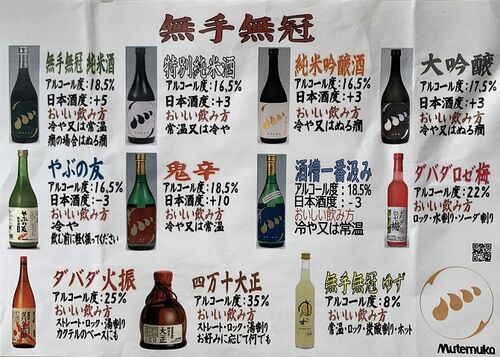 無手無冠
無手無冠 純米酒
アルコール度:18.5%
日本酒度:+5
おいしい飲み方
冷や又は常温
燗の場合はぬる燗
特別純米酒
アルコール度:16.5%
日本酒度:+3
おいしい飲み方
常温又は冷や
純米吟醸酒
アルコール度:16.5%
日本酒度:+3
おいしい飲み方
冷や又はぬる燗
大吟醸
アルコール度:17.5%
日本酒度:+3
おいしい飲み方
冷や又はぬる燗
やぶの友
アルコール度:16,5%
日本酒度:-3
おいしい飲み方
冷や
飲む前に軽く振ってください
鬼辛
アルコール度:18.5%
日本酒度:+10
おいしい飲み方
冷や又はぬる燗
酒槽一番汲み
アルコール度:18.5%
日本酒度:-3
おいしい飲み方
冷や又は常温
ダバダロゼ梅
アルコール度:22%
おいしい飲み方
ロック・水割り・ソーダ割り
ダバダ火振
アルコール度:25%
おいしい飲み方
ストレート・ロック・湯割り
カクテルのベースにも
四万十大正
アルコール度:35%
おいしい飲み方
ストレート・ロック・湯割り
お好みに応じて何でも
無手無冠 ゆず
アルコール度:8%
おいしい飲み方
常温・ロック・炭酸割り・ホット
Mutemuka